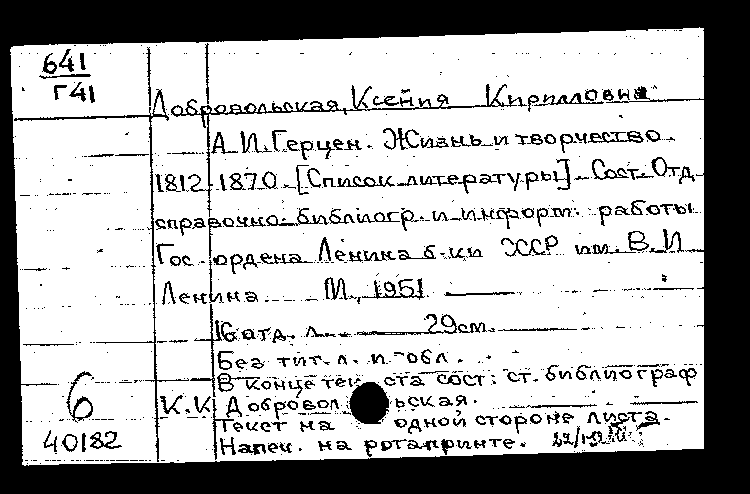 641
Г41
Добровольская, Ксения Кирилловна
А. И. Герцен. Жизнь и творчество.
1812-1870. [Список литературы]. Сост. Отд.
справочно-библиогр. и информ. работы
Гос. ордена Ленина б-ки СССР им. В. И.
Ленина. М., 1951
16 отд. л. 29 см.
Без тит. л. и обл.
В конце текста сост.: ст. библиограф
К.К. Добровольская.
Текст на одной стороне листа.
Напеч. на ротапринте.
б
40182